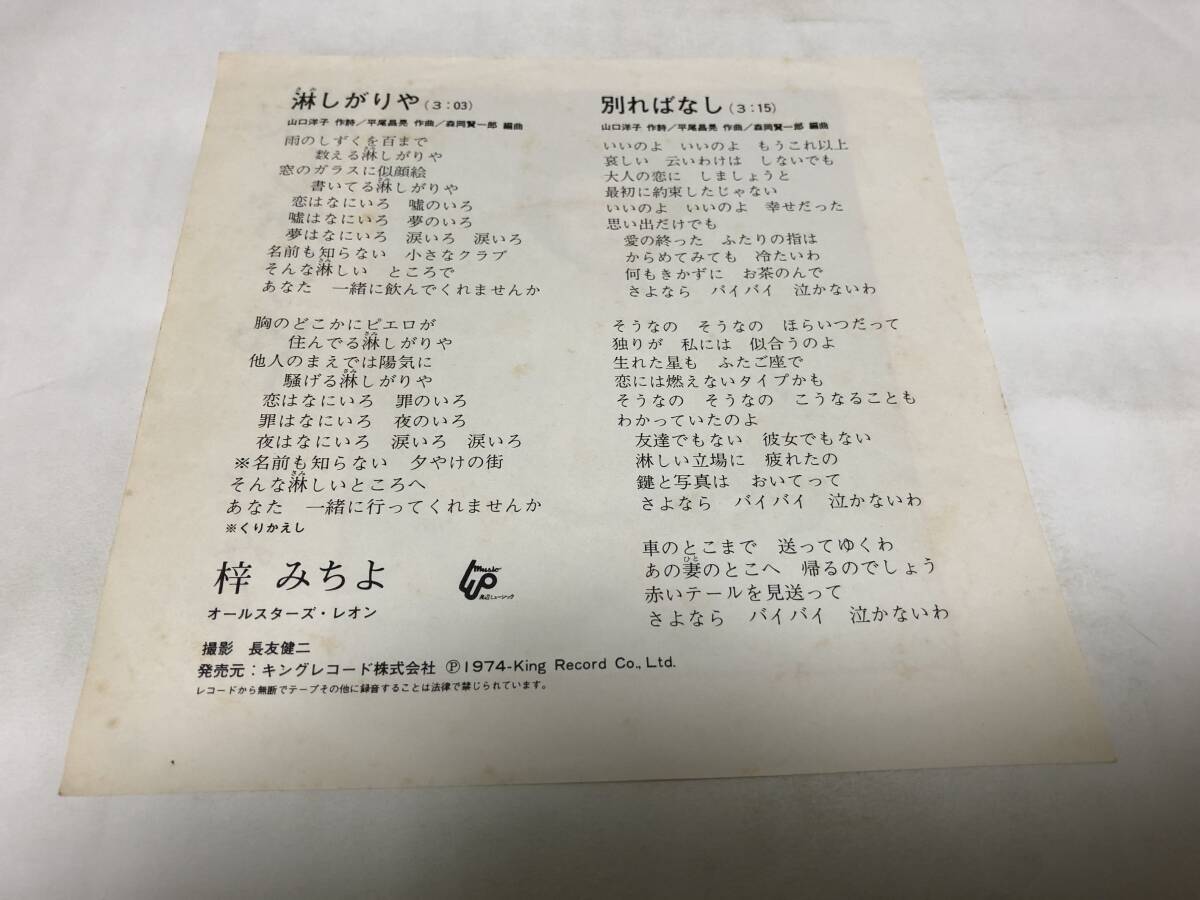 淋しがりや(3:03)
山口洋子 作詩/平尾昌晃 作曲/森岡賢一郎 編曲
雨のしずくを百まで
数える淋しがりや
窓のガラスに似顔絵
書いてる淋しがりや
恋はなにいろ 嘘のいろ
嘘はなにいろ 夢のいろ
夢はなにいろ 涙いろ 涙いろ
名前も知らない 小さなクラブ
そんな淋しい ところで
あなた 一緒に飲んでくれませんか
胸のどこかにピエロが
住んでる淋しがりや
他人のまえでは陽気に
騒げる淋しがりや
恋はなにいろ 罪のいろ
罪はなにいろ 夜のいろ
夜はなにいろ 涙いろ 涙いろ
※名前も知らない 夕やけの街
そんな淋しいところへ
あなた 一緒に行ってくれませんか
※くりかえし
梓 みちよ
オールスターズ・レオン
music
渡辺ミュージック
撮影 長友健二
発売元:キングレコード株式会社 Ⓟ1974-King Record Co., Ltd.
レコードから無断でテープその他に録音することは法律で禁じられています。
別ればなし(3:15)
山口洋子 作詩/平尾昌晃 作曲/森岡賢一郎 編曲
いいのよ いいのよ もうこれ以上
哀しい 云いわけは しないでも
大人の恋に しましょうと
最初に約束したじゃない
いいのよ いいのよ 幸せだった
思い出だけでも
愛の終った ふたりの指は
からめてみても 冷たいわ
何もきかずに お茶のんで
さよなら バイバイ 泣かないわ
そうなの そうなの ほらいつだって
独りが 私には 似合うのよ
生れた星も ふたご座で
恋には燃えないタイプかも
そうなの そうなの こうなることも
わかっていたのよ
友達でもない 彼女でもない
淋しい立場に 疲れたの
鍵と写真は おいてって
さよなら バイバイ 泣かないわ
車のとこまで 送ってゆくわ
あの妻のとこへ 帰るのでしょう
赤いテールを見送って
さよなら バイバイ 泣かないわ